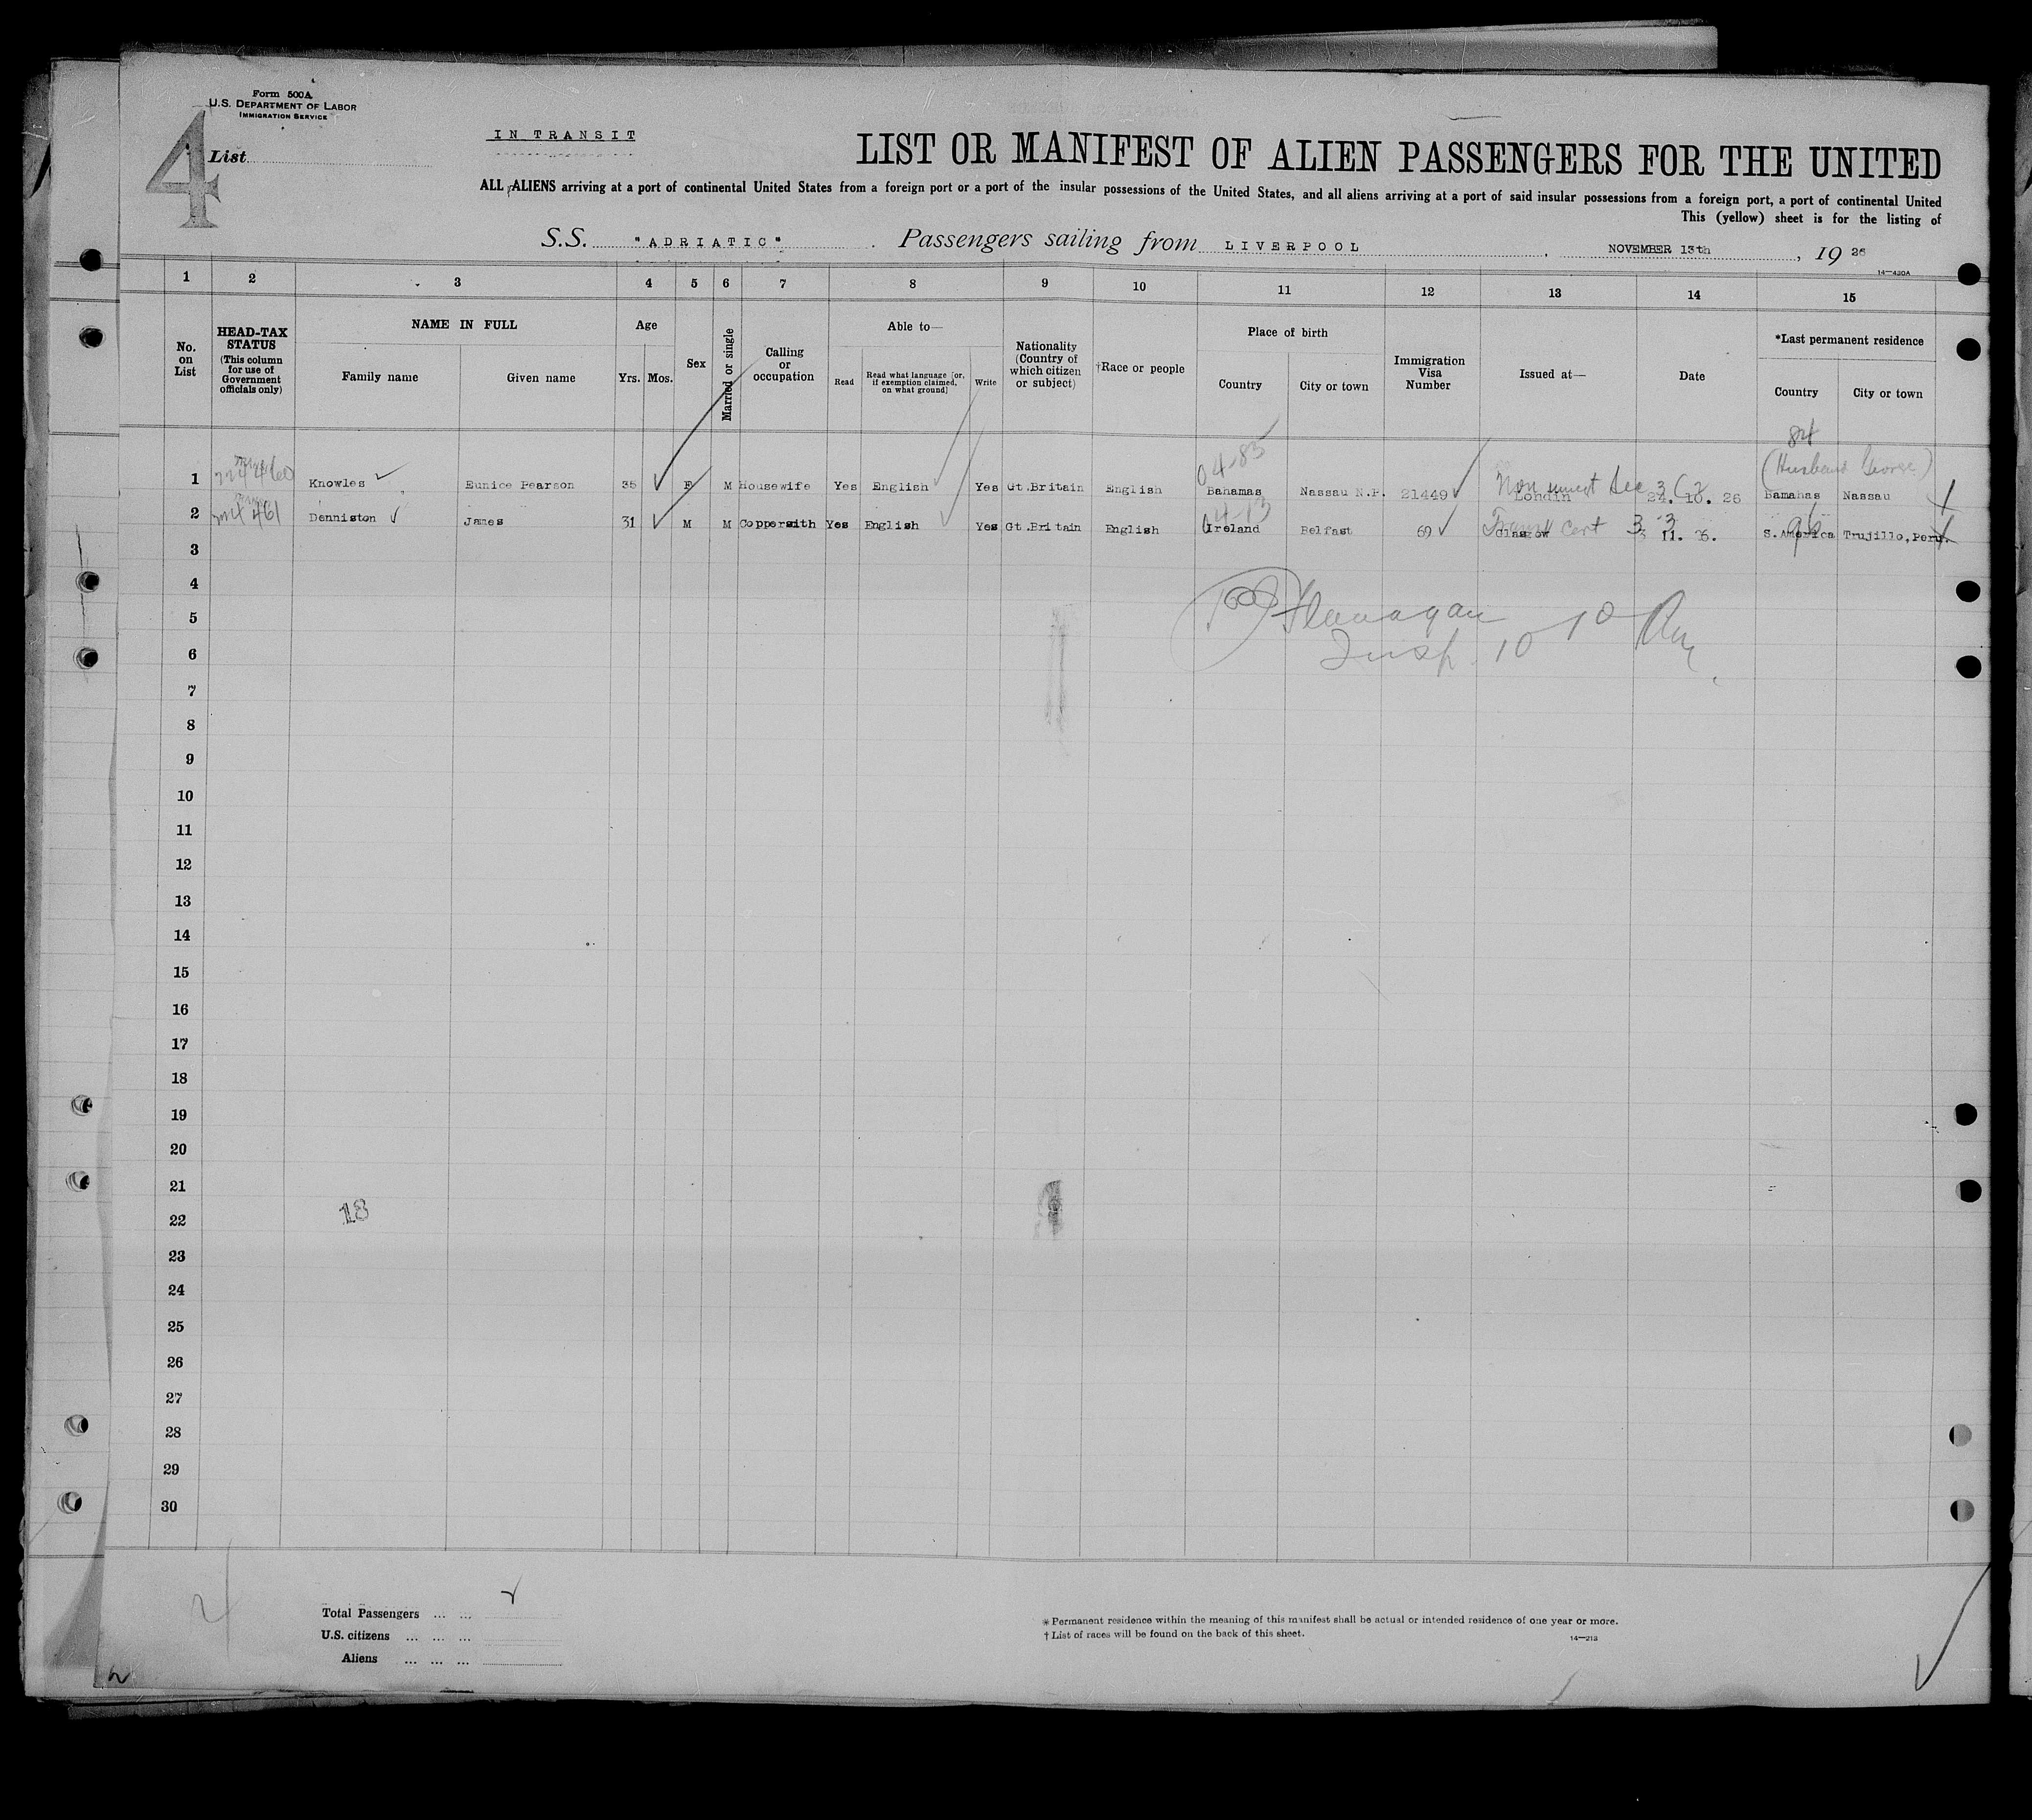 Form 500A
U.S. DEPARTMENT OF LABOR
IMMIGRATION SERVICE
4
List
IN TRANSIT
LIST OR MANIFEST OF ALIEN PASSENGERS FOR THE UNITED
ALL ALIENS arriving at a port of continental United States from a foreign port or a port of the insular possessions of the United States, and all aliens arriving at a port of said insular possessions from a foreign port, a port of continental United
This (yellow) sheet is for the listing of
S.S. "ADRIATIC" . Passengers sailing from LIVERPOOL, NOVEMBER 13th, 19 26
14—430A
1 2 3 4 5 6 7 8 9 10 11 12 13 14 15
No. on List
HEAD-TAX STATUS (This column for use of Government officials only)
NAME IN FULL
Family name Given name
Age
Yrs. Mos.
Sex
Married or single
Calling or occupation
Able to—
Read
Read what language [or, if exemption claimed, on what ground]
Write
Nationality (Country of which citizen or subject)
†Race or people
Place of birth
Country City or town
Immigration Visa Number
Issued at—
Date
*Last permanent residence
Country City or town
04-85
(Husband George)
1 Knowles Eunice Pearson 35 F M Housewife Yes English Yes Gt.Britain English Bahamas Nassau N.P. 21449 London 24. 10. 26 Bamahas Nassau
2 Denniston James 31 M M Coppersmith Yes English Yes Gt.Britain English Ireland Belfast 69 Glasgow 11. S.America Trujillo, Peru.
Transit Cert
3
4
5
Flanagan
6
Insp. 10
7
8
9
10
11
12
13
14
15
16
17
18
19
20
21
22
18
23
24
25
26
27
28
29
30
Total Passengers ... ...
U.S. citizens ... ... ...
Aliens ... ... ...
* Permanent residence within the meaning of this manifest shall be actual or intended residence of one year or more.
† List of races will be found on the back of this sheet.
14—213